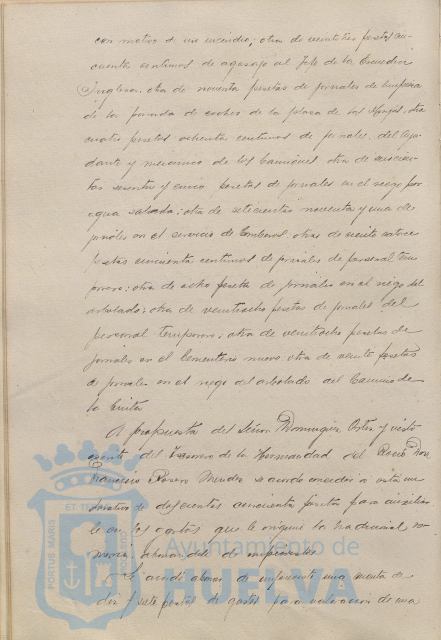 con motivo de un incendio; otra de veintitres pesetas cin-
cuenta centimos de agasajo al Jefe de la Escuadra
Inglesa. otra de noventa pesetas de jornales de limpieza
de la parada de coches de la plaza de las Monjas. otra
cuatro pesetas ochenta centimos de jornales del Ayu-
dante y mecanico de los Camiones otra de seiscien-
tas sesenta y cinco pesetas de jornales en el riego por
agua salada; otra de setecientas noventa y una de
jornales en el servicio de Bomberos. otras de veinte
pesetas cincuenta centimos de jornales de personal tem
porero; otra de ocho pesetas de jornales en el riego del
arbolado; otra de veintiocho pesetas de jornales del
personal temporero, otra de veintiocho pesetas de
jornales en el Cementerio nuevo. otra de veinte pesetas
de jornales en el riego del arbolado del Camino de
la Cinta
A propuesta del Señor Dominguez Ortiz y visto
escrito del Tesorero de la Hermandad del Rocio Don
Francisco Rosero Mendez se acordo conceder a esta un
donativo de doscientas cincuenta pesetas para auxiliar
le en los gastos que le origine la tradicional ro-
meria abonandole de imprevistos
Se acordó abonar de imprevistos una cuenta de
diez y siete pesetas de gastos para valoracion de una
ET TE
PORTUS MARIS
Ayuntamiento de
HUELVA